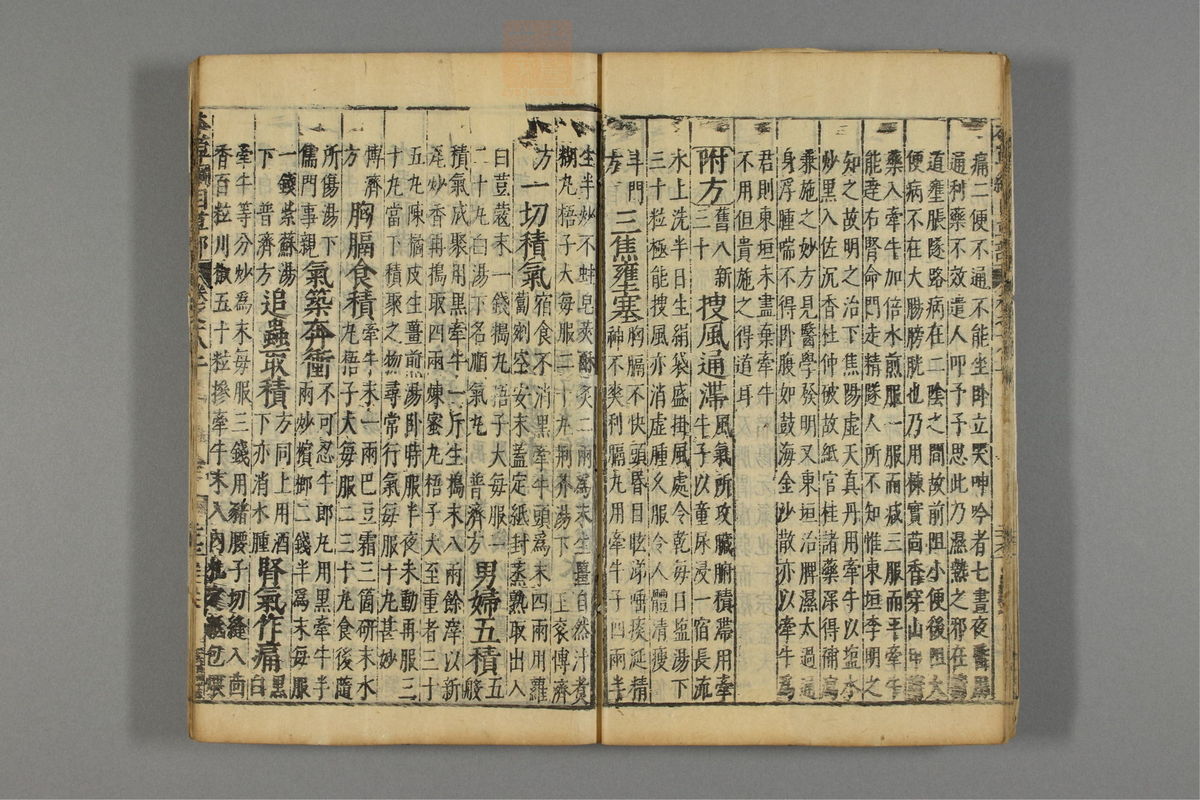 痛二便不通不能坐卧立哭呻吟者七晝夜醫用
通利藥不效遣人叩予予思此乃濕熱之邪在
道壅脹隧路病在二陰之間故前阻小便後阻大
便病不在大腸膀胱也乃用楝實茴香穿山甲諸
藥入牽牛加倍水煎服一服而减三服而平牽牛
能達右腎命門走精隧人所不知惟東垣李明之
知之故明之治下焦陽虚天真丹用牽牛以塩水
炒黑入佐沉香杜仲破故紙官桂諸藥深得補瀉
兼施之妙方見醫學發明又東垣治脾濕太過通
身浮腫喘不得卧腹如鼓海金沙散亦以牽牛爲
君則東垣未盡棄牽牛
不用但貴施之得道耳
附方 舊八新三十 搜風通滯 風氣所攻臟腑積滯用牽
牛子以童尿浸一宿長流
水上洗半日生絹袋盛掛風處令乾每日塩湯下
三十粒極能搜風亦消虚腫久服令人體清瘦
斗門方 三焦壅塞 胸膈不快頭昏目眩涕唾痰涎精
神不爽利膈丸用牽牛子四兩半
生半炒不蛀皂莢酥炙二兩爲末生薑自然汁煮
糊丸梧子大每服二十丸荆芥湯下王衮博濟
方 一切積氣 宿食不消黑牽牛頭爲末四兩用蘿
蔔剜空安末蓋定紙封蒸熟取出入
白荳蔻末一錢搗丸梧子大每服
二十丸白湯下名順氣丸 普濟方 男婦五積 五般
積氣成聚用黑牽牛一斤生搗末八兩餘滓以新
瓦炒香再搗取四兩煉蜜丸梧子大至重者三十
五丸陳橘皮生薑煎湯卧時服半夜未動再服三
十丸當下積聚之物尋常行氣每服十丸甚妙
博濟方 胸膈食積 牽牛末一兩巴豆霜三箇研末水
丸梧子大每服二三十丸食後隨
所傷湯下儒門事親 氣築奔衝 不可忍牛郎丸用黑牽牛半
兩炒檳榔二錢半爲末每服
一錢紫蘇湯下普濟方 追蟲取積 方同上用酒
下亦消水腫 腎氣作痛 黑白
牽牛等分炒爲末每服三錢用猪腰子切縫入茴
香百粒川椒五十粒摻牽牛末入内